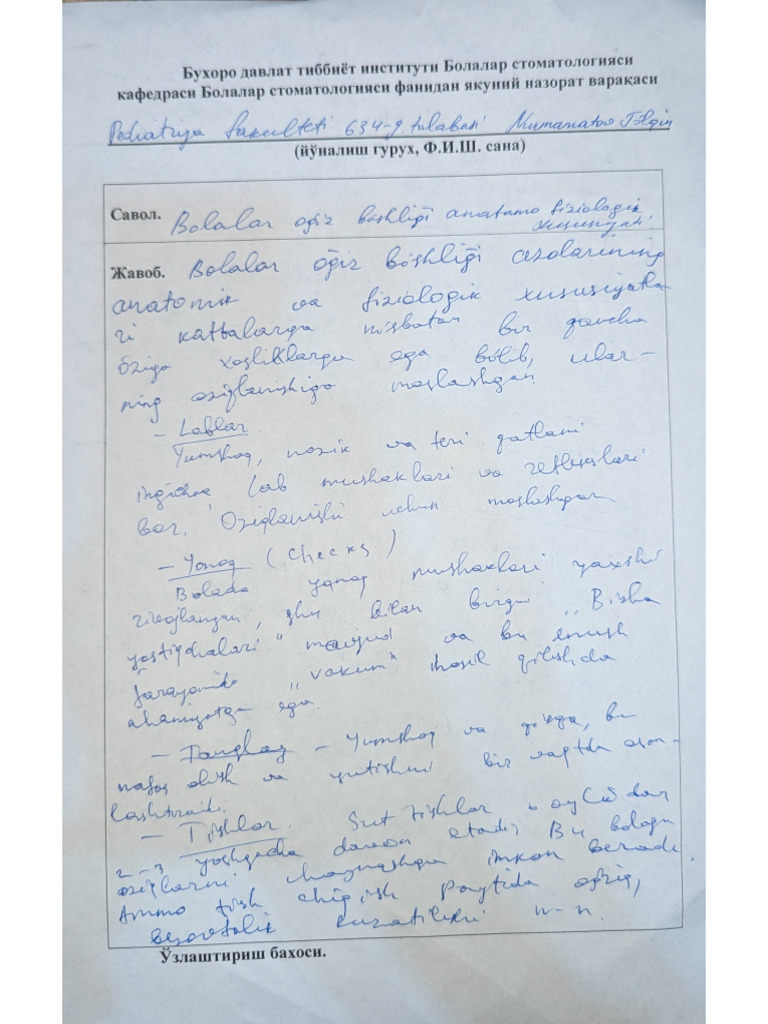 Бухоро давлат тиббиёт институти Болалар стоматологияси
кафедраси Болалар стоматологияси фанидан якуний назорат варақаси
Pediatriya fakulteti 634-g talabasi
(йўналиш гурух, Ф.И.Ш. сана)
Савол. Bolalar og'iz bo'shlig'i anatomo fiziologik
xususiyati.
Жавоб. Bolalar og'iz bo'shlig'i azolarining
anatomik va fiziologik xususiyatla-
ri kattalarga nisbatan bir qancha
o'ziga xosliklarga ega bo'lib, ular-
ning oziqlanishiga moslashgan.
- Lablar.
Yumshoq, nozik va teri qatlami
ingichka lab mushaklari va reflekslari
bor. Oziqlanishi uchun moslashgan.
- Yonoq (Checks)
Bolada yonoq mushaklari yaxshi
rivojlangan, shu bilan birga „Bisha
yostiqchalari" mavjud va bu emish
jarayonida „vakum" hosil qilishda
ahamiyatga ega.
- Tanglay - Yumshoq va, bu
nafas olish va yutishni bir vaqtda oson-
lashtiradi.
- Tishlar. Sut tishlar 6 oylikdan
2-3 yoshgacha davom etadi. Bu bolaga
oziqlarni chaynashga imkon beradi.
Ammo tish chiqish paytida og'riq,
bezovtalik kuzatilishi
Ўзлаштириш бахоси.